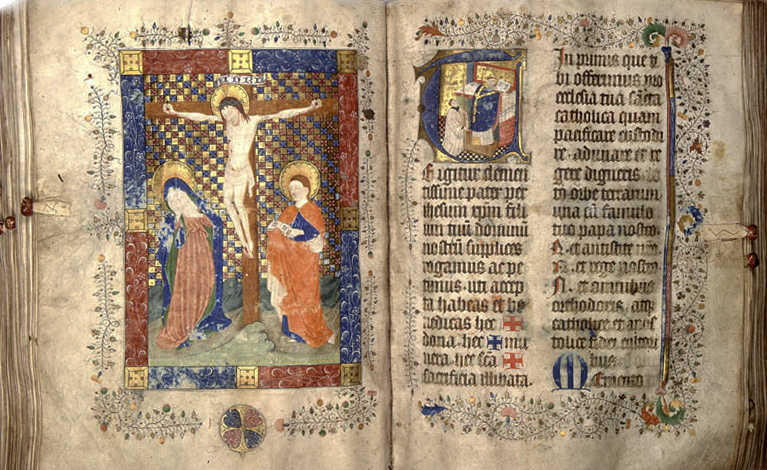 TE igitur clemen
tissime pater per
ihesum xpm fili
um tuū dominū
nostrū supplices
rogamus ac pe
timus. uti accep
ta habeas et be
nedicas hec ✠
dona. hec ✠ mu
nera. hec sca ✠
sacrificia illibata.
In primis que ti
bi offerimus pro
ecclesia tua sācta
catholica quam
pacificare custodi
re. adunare et re
gere digneris. to
to orbe terrarum
una cū famulo
tuo papa nostro
N. et antistite nro
N. et rege nostro
N. et omnibus
orthodoxis. atqꝫ
catholice et apos
tolice fidei cultori
bus.
Memento